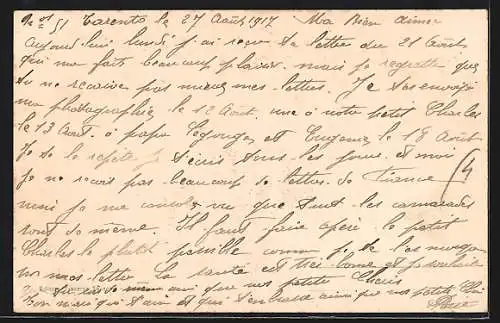 No 51 Tarente le 27 Août 1917 Ma Bien aimée
Aujourd'hui lundi j'ai reçu ta lettre du 21 Août
qui me fait beaucoup plaisir mais je regrette que
tu ne reçoive pas mieux mes lettres. Je t'es envoyé
ma photographie le 12 Août, une à notre petit Charles
le 13 Août à papa et Eugénie le 18 Août
Je te le repète je t'écris tous les jours et moi
je ne reçois pas beaucoup de lettres de
mais je me console vu que tout les camarades
sont de même. Il faut faire opéré le petit
Charles le plutôt possible comme je te les
sur mes lettre la santé est très bonne et je souhaite
que nos petits Chéris
Ton mari qui t'aime et qui t'embrasse ainsi que nos petits
4